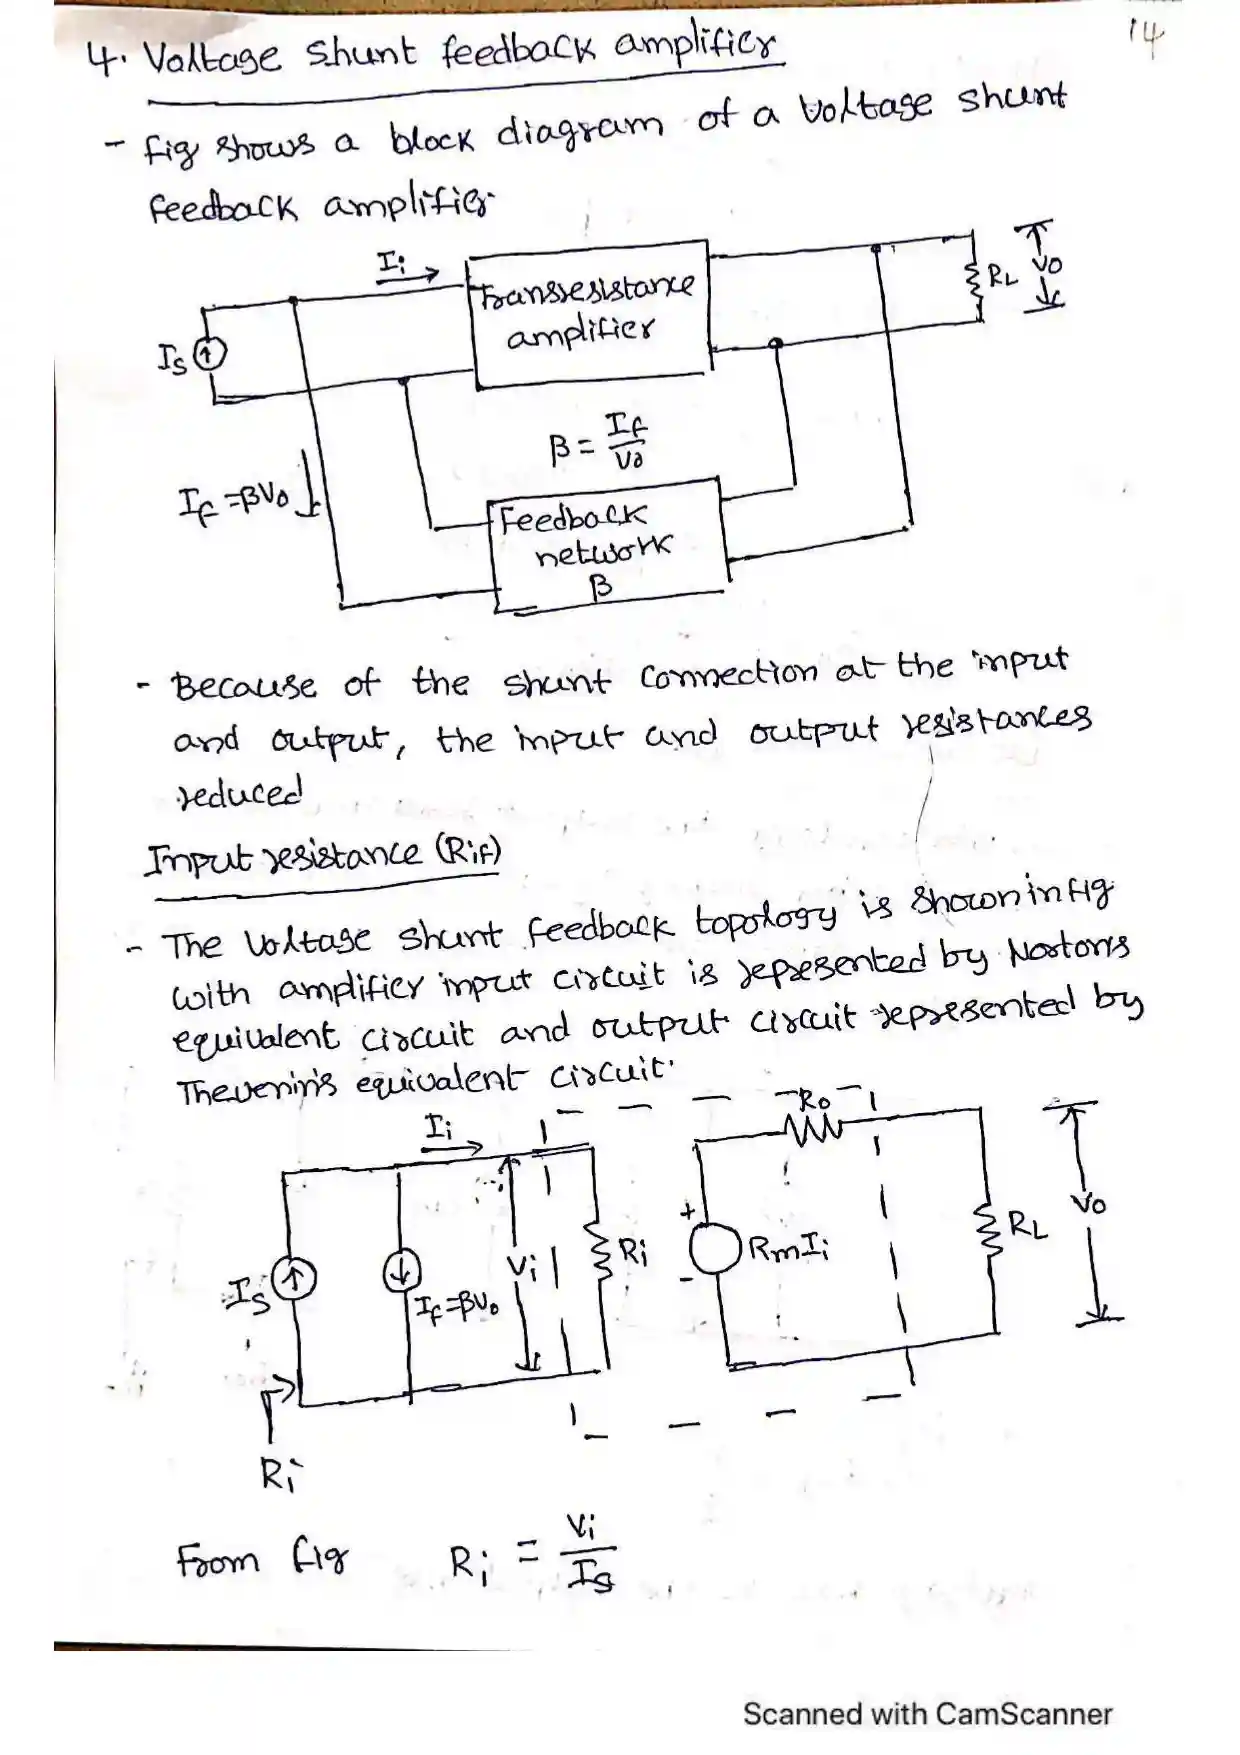 14
4. Voltage shunt feedback amplifier
- fig shows a block diagram of a voltage shunt
feedback amplifier.
Ii
Transresistance
amplifier
RL
Vo
Is
β = If/Vo
If = βVo
Feedback
network
β
- Because of the shunt connection at the input
and output, the input and output resistances
reduced
Input resistance (Rif)
- The voltage shunt feedback topology is shown in fig
with amplifier input circuit is represented by Nortons
equivalent circuit and output circuit represented by
Thevenin's equivalent circuit.
Ro
Ii
Is
If = βVo
Vi
Ri
+
-
RmIi
RL
Vo
Ri
From fig Ri = Vi/Is
Scanned with CamScanner